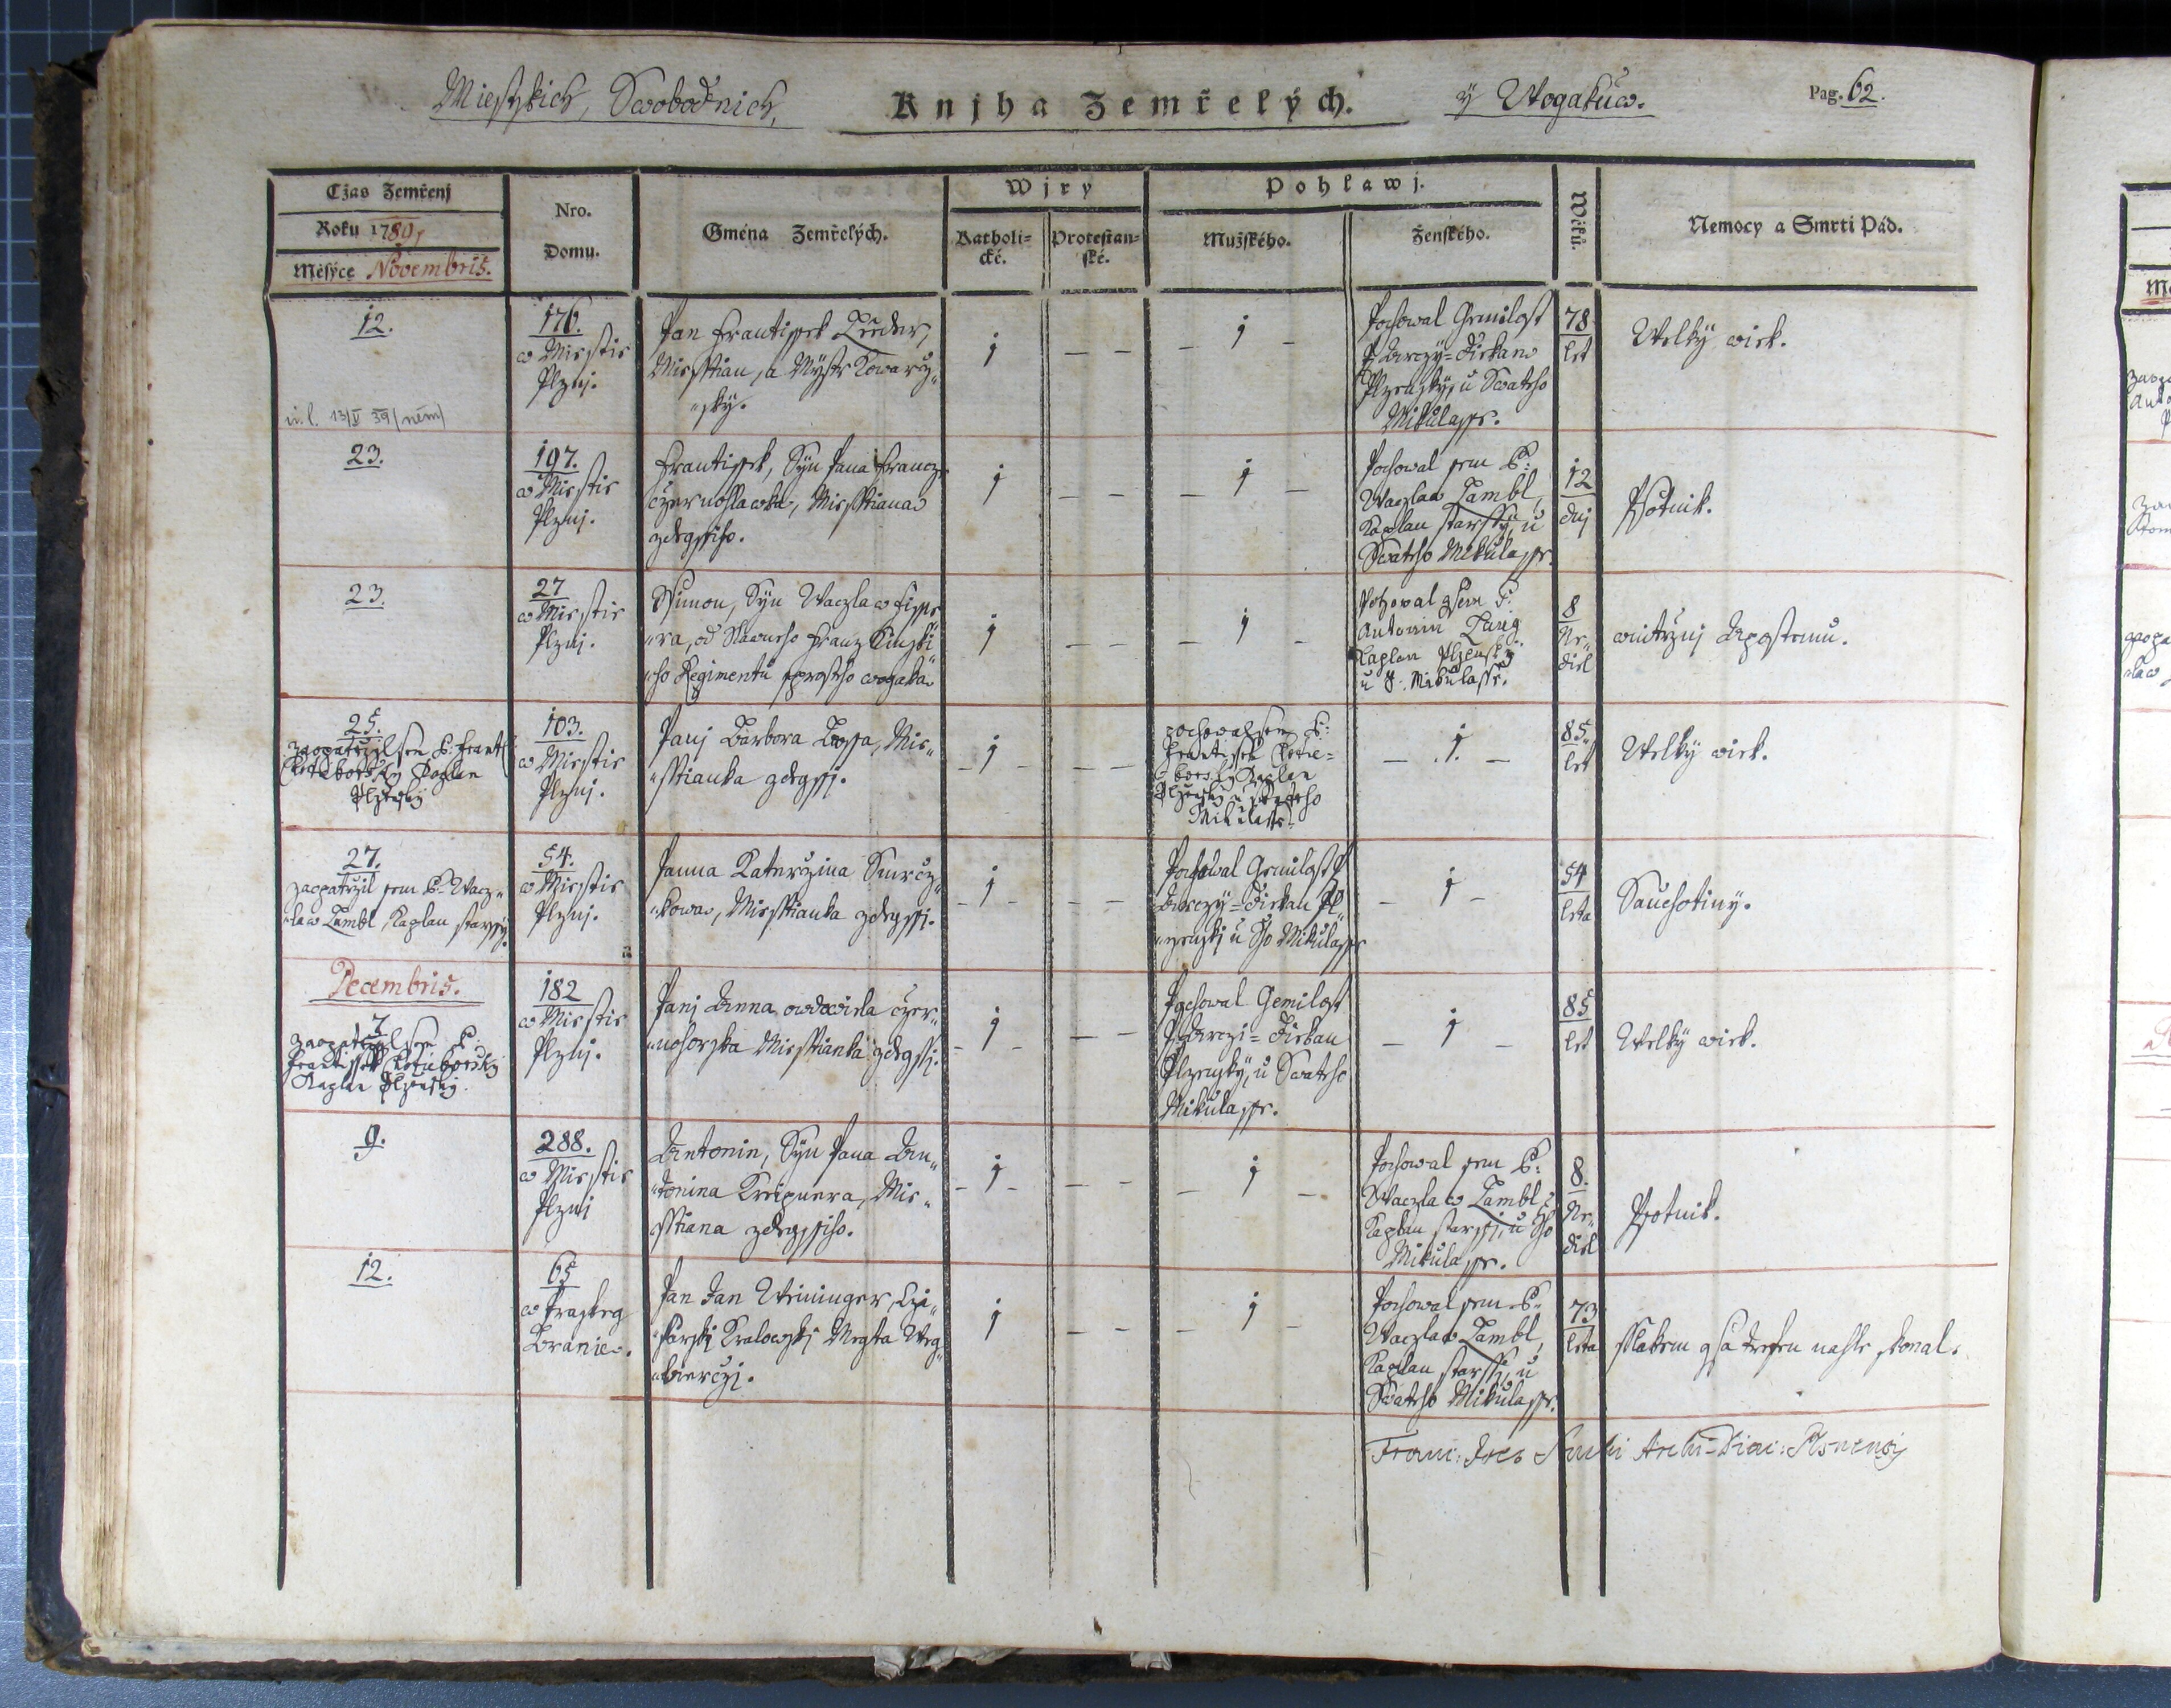 Miestskich, Swobodnich,
Knjha Zemřelých.
ÿ Wogakůw.
Pag. 62.
Cžas Zemřenj
Roku 178
Měsýce Novembris.
Nro.
Domu.
Gména Zemřelých.
Wjry
Katholi=
cké.
Protestan=
ské.
Pohlawj.
Mužského.
Ženského.
Wěků.
Nemocy a Smrti Pád.
12.
176.
w Miestie
Plznj.
Pan Frantissek
Miesstian, a Mystr Kowarž„
„skÿ.
1
1
Pochowal Gemilost
P. Arczÿ=Diekan
Plzenskÿ, u Swateho
Mikulasse.
78
let
Welkÿ wiek.
23.
197.
w Miestie
Plznj.
Frantissek, Sÿn Pana Francze
czernohlawka, Miesstiana
zdegssiho.
1
1
Pochowal sem P:
Waczlaw Tambl,
Kaplan starssÿ, u
Swateho Mikulasse.
12
dnj
Psotnik.
23.
27
w Miestie
Plznj.
Ssimon, Sÿn Waczlawa Fisse„
„ra, od Slawneho Franz Kinski„
„ho Regimentu sprosteho wogaka
1
1
Pochowal gsem P:
Antonin
Kaplan Plzenskÿ
u S. Mikulasse.
8
Ne„
diel
wnitržnj Apostemu.
25.
zaopatržil sem P. Frant:
Kaplan
Plzenskÿ
103.
w Miestie
Plznj.
Panj Barbora Miе„
„sstianka zdegssj.
1
pochowal sem P:
Frantissek
Kaplan
Plzenskÿ u Swateho
Mikulasse.
1.
85
let
Welkÿ wiek.
27.
zaopatržil sem P: Wacz„
„law Tambl, Kaplan starssÿ.
54.
w Miestie
Plznj.
Panna Kateržina Smrcž„
„kowa, Miesstianka zdegssj.
1
Pochowal Gemilost P
Arczÿ=Diekan Pl„
„zenskj u Sho Mikulasse
1
54
leta
Sauchotinÿ.
Decembris.
7
zaopatržil sem P.
Frantissek
Kaplan Plzenskÿ.
182
w Miestie
Plznj.
Panj Anna owdowiela czer„
„nohorska Miesstianka zdegssj.
1
Pochowal Gemilost
P. Arczi=Diekan
Plzenskÿ, u Swateho
Mikulasse.
1
85
let
Welkÿ wiek.
9.
288.
w Miestie
Plznj
Antonin, Sÿn Pana An„
„tonina Kreipnera, Mie„
sstiana zdegssiho.
1
1
Pochowal sem P:
Waczlaw Tambl,
Kaplan starssj, u Sho
Mikulasse.
8.
Ne„
diel
Psotnik.
12.
65
w Prazskeg
Branie.
Pan Jan Weininger, Czi„
„sarskj Kralowskj Megta Weg„
„bierczj.
1
1
Pochowal sem P:
Waczlaw Tambl,
Kaplan starssj, u
Swateho Mikulasse.
73
leta
sslakem gsa trefen nahle skonal.
Franc: Archi-Diac: Plsnensis